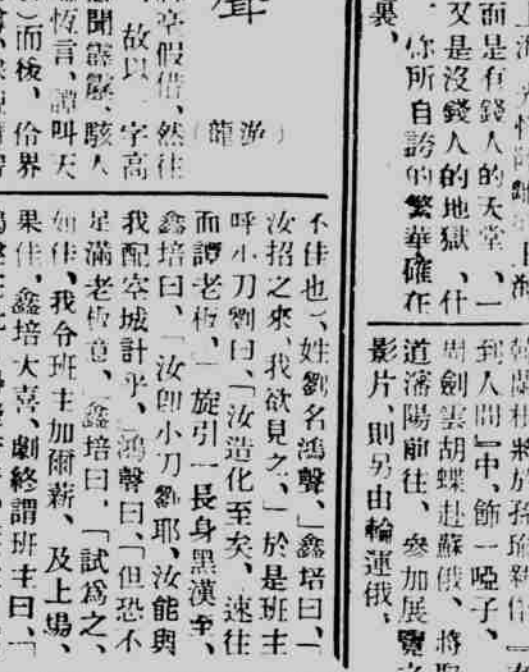 面是有錢人的天堂、一
又是沒錢人的地獄、什
你所自誇的繁華確在
裏、
到人間』中、飾一啞子、
周劍雲胡蝶赴蘇俄、將
道瀋陽前往、參加展覽
影片、則另由輪運俄、
聲
(龍游)
假借、然往
故以一字高
駭人
恆言、譚叫天
而後、伶界
不佳也)、姓劉名鴻聲、」鑫培曰、「
汝招之來、我欲見之、」於是班主
呼小刀劉曰、「汝造化至矣、速往
而譚老板、」旋引一長身黑漢至、
鑫培曰、「汝卽小刀劉耶、汝能與
我配空城計乎、」鴻聲曰、「但恐不
足滿老板意、」鑫培曰、「試爲之、
如佳、我令班主加爾薪、及上場、
果佳、鑫培大喜、劇終謂班主曰、「